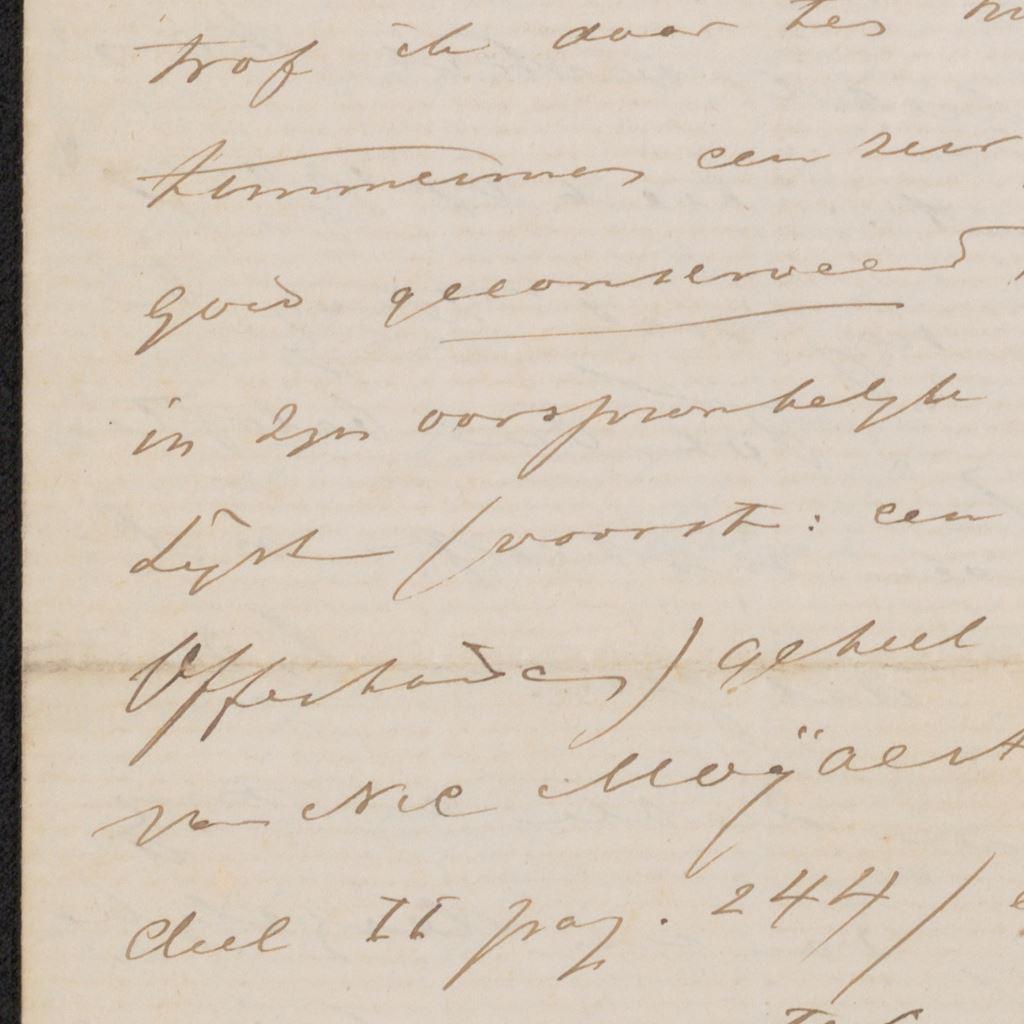 trof ik daar ten
timmerman een zeer
goed geconserveerd
in zijn oorspronkelyke
Lyst (voorst: een
Offerhande) geheel
van Nic Moÿaert
deel II pag. 244/